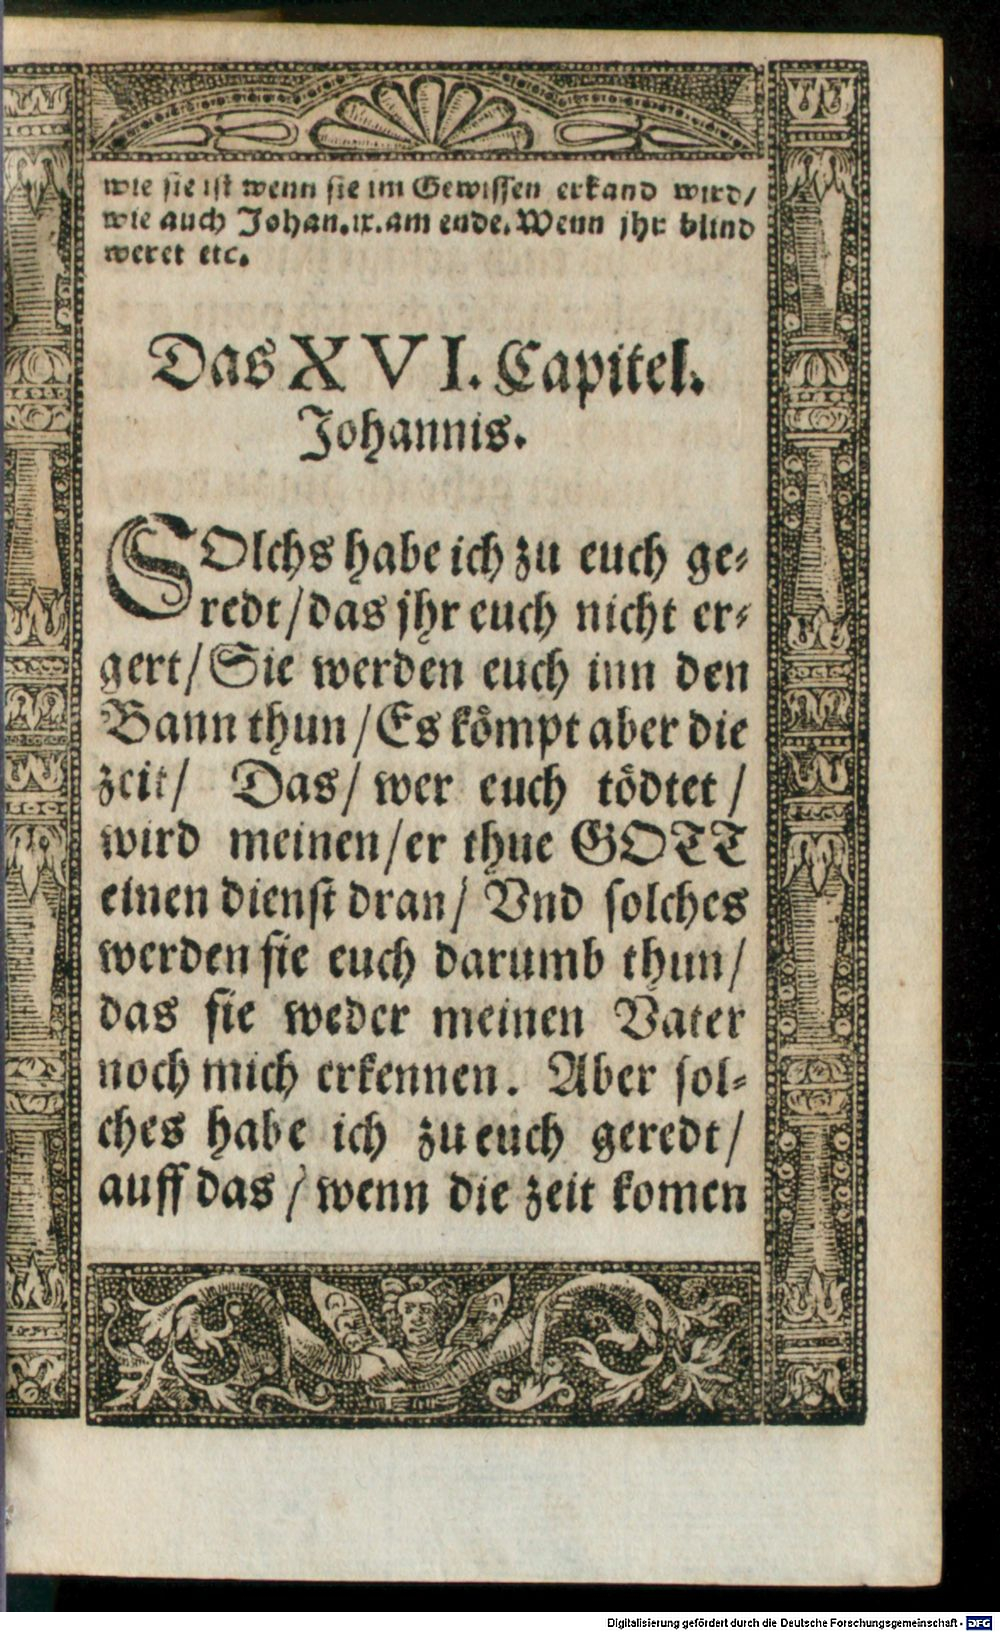 wie sie ist wenn sie im Gewissen erkand wird/
wie auch Johan.ix.am ende. Wenn jhr blind
weret etc.
Das XVI. Capitel.
Johannis.
SOlchs habe ich zu euch ge-
redt/das jhr euch nicht er-
gert/Sie werden euch inn den
Bann thun/Es kömpt aber die
zeit/ Das/ wer euch tödtet/
wird meinen/er thue GOTT
einen dienst dran/ Vnd solches
werden sie euch darumb thun/
das sie weder meinen Vater
noch mich erkennen. Aber sol-
ches habe ich zu euch geredt/
auff das/wenn die zeit komen
Digitalisierung gefördert durch die Deutsche Forschungsgemeinschaft - DFG